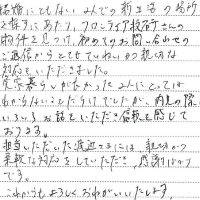 結婚にともない 2人での新生活の場所
を探すにあたり、フロンティア投資さんの
物件を見つけ、初めてのお問い合わせの
ご返信からとてもていねいかつ親切な
対応をいただきました。
実家暮らしが長かった2人にとっては
わからないことだらけでしたが、内見の際に
いろいろお話をいただき信頼を感じて
おります。
担当いただいた渡辺さまには 親切かつ
柔軟な対応をしていただき、感謝ばかり
です。
これからもよろしくおねがいいたします。